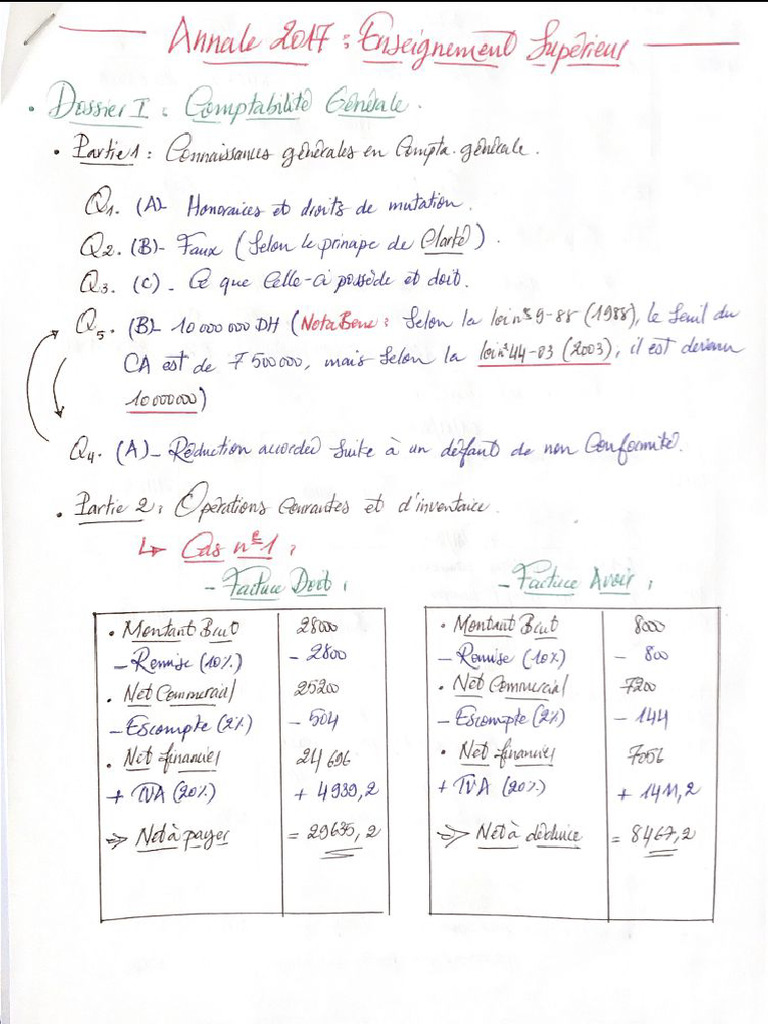 Annale 2017 : Enseignement Supérieur
• Dossier I : Comptabilité Générale.
• Partie 1 : Connaissances générales en Compta. générale.
Q1. (A)- Honoraires et droits de mutation.
Q2. (B)- Faux (Selon le principe de Clarté).
Q3. (C)- Ce que Celle-ci possède et doit.
Q5. (B)- 10 000 000 DH (Nota Bene : Selon la loi n° 9-88 (1988), le Seuil du
CA est de 7 500 000, mais Selon la loi n° 44-03 (2003), il est devenu
10 000 000)
Q4. (A)- Réduction accordée suite à un défaut de non Conformité.
• Partie 2 : Opérations Courantes et d'inventaire.
↳ Cas n° 1 :
- Facture Doit :
• Montant Brut 28000
- Remise (10%) - 2800
• Net Commercial 25200
- Escompte (2%) - 504
• Net financier 24696
+ TVA (20%) + 4939,2
=> Net à payer = 29635,2
- Facture Avoir :
• Montant Brut 8000
- Remise (10%) - 800
• Net Commercial 7200
- Escompte (2%) - 144
• Net financier 7056
+ TVA (20%) + 1411,2
=> Net à déduire = 8467,2